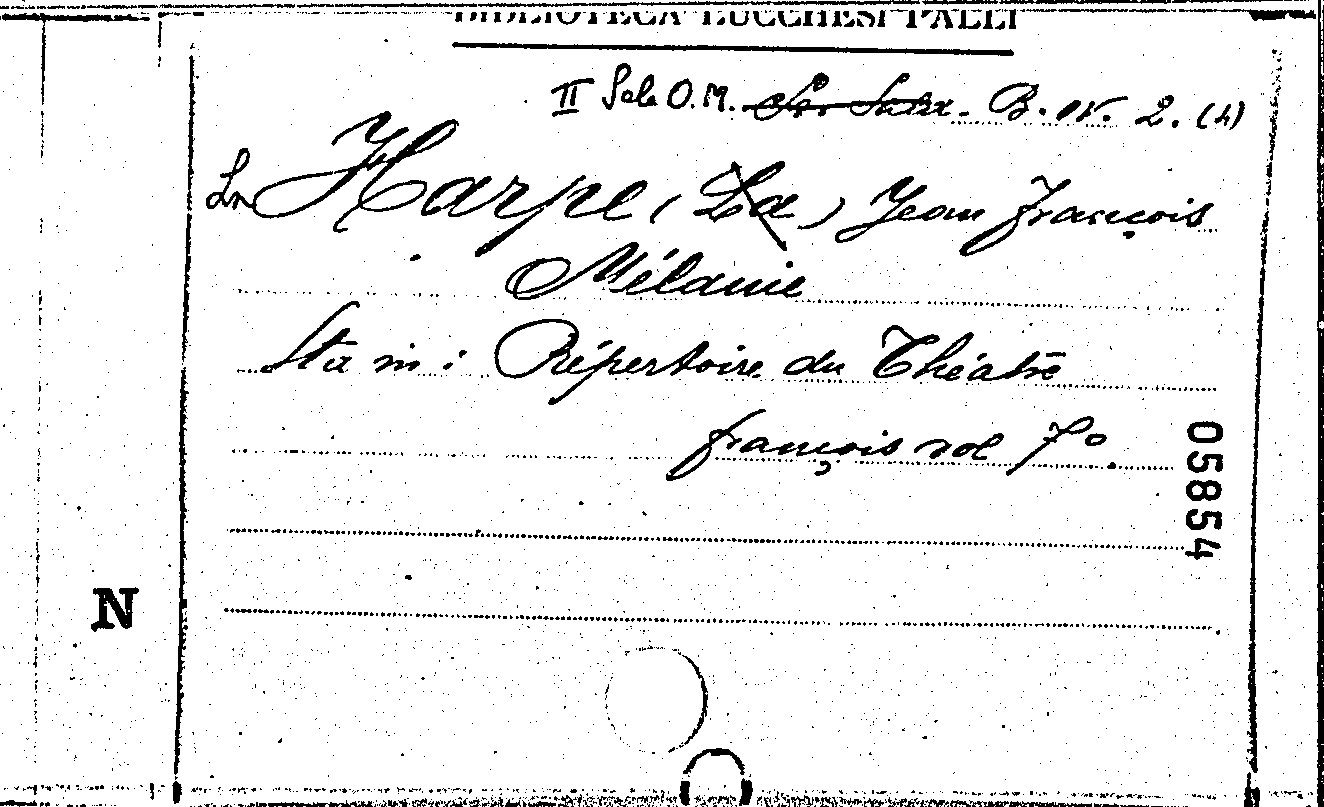 BIBLIOTECA LUCCHESI PALLI
II Sala O.M. B. IV. 2. (4)
La Harpe (La) Jean François
Mélanie
Sta in: Répertoire du Théatre
françois vol 7º.
05854
N